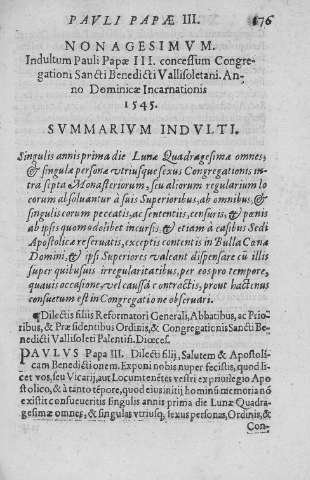 PAVLI PAPÆ III. 176
NONAGESIMVM.
Indultum Pauli Papæ III. concessum Congre-
gationi Sancti Benedicti Vallisoletani. An-
no Dominicæ Incarnationis
1545.
SVMMARIVM INDVLTI.
Singulis annis prima die Lunæ Quadragesimæ omnes,
& singulæ personæ vtriusque sexus Congregationis in-
tra septa Monasteriorum, seu aliorum regularium lo
corum absoluantur à suis Superioribus, ab omnibus, &
singulis eorum peccatis, ac sententiis, censuris, & pœnis
ab ipsis quomodolibet incursis, & etiam à casibus Sedi
Apostolicæ reseruatis, exceptis contentis in Bulla Cœnæ
Domini, & ipsi Superiores valeant dispensare cū illis
super quibusuis irregularitatibus, per eos pro tempore,
quauis occasione, vel caussa contractis, prout hactenus
consuetum est in Congregatione obseruari.
¶Dilectis filiis Reformatori Generali, Abbatibus, ac Prio-
ribus, & Præsidentibus Ordinis, & Congregationis Sancti Be-
nedicti Vallisoleti Palentiñ. Diœces.
PAVLVS Papa III. Dilecti filij, Salutem & Apostoli-
cam Benedictionem. Exponi nobis nuper fecistis, quod li-
cet vos, seu Vicarij, aut Locumtenētes vestri ex priuilegio Apo
stolico, & à tanto tēpore, quod eius initij hominū memoria nō
existit consueueritis singulis annis prima die Lunæ Quadra-
gesimæ omnes, & singulas vtriusq; sexus personas, Ordinis, &
Con-